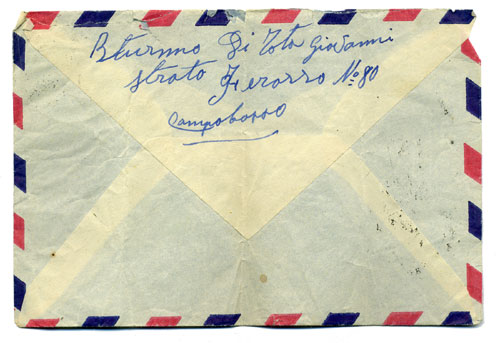 Bturnno Di Tota Giovanni
strato Ferasso Nº 80
Campobasso